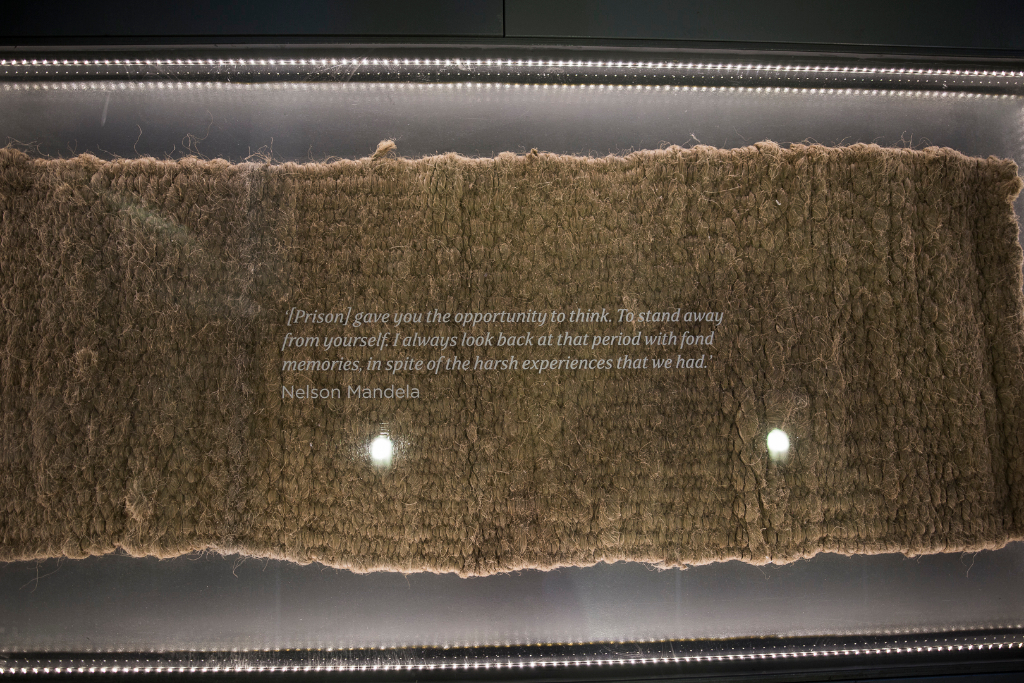 '[Prison] gave you the opportunity to think. To stand away
from yourself. I always look back at that period with fond
memories, in spite of the harsh experiences that we had.'
Nelson Mandela